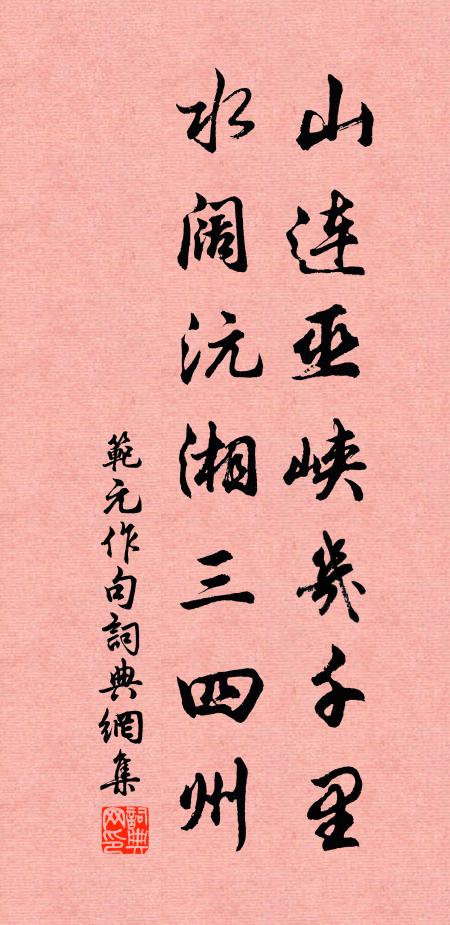 山連巫峽幾千里
水阔沅湘三四州
範元作句詞典網集
詞典网印